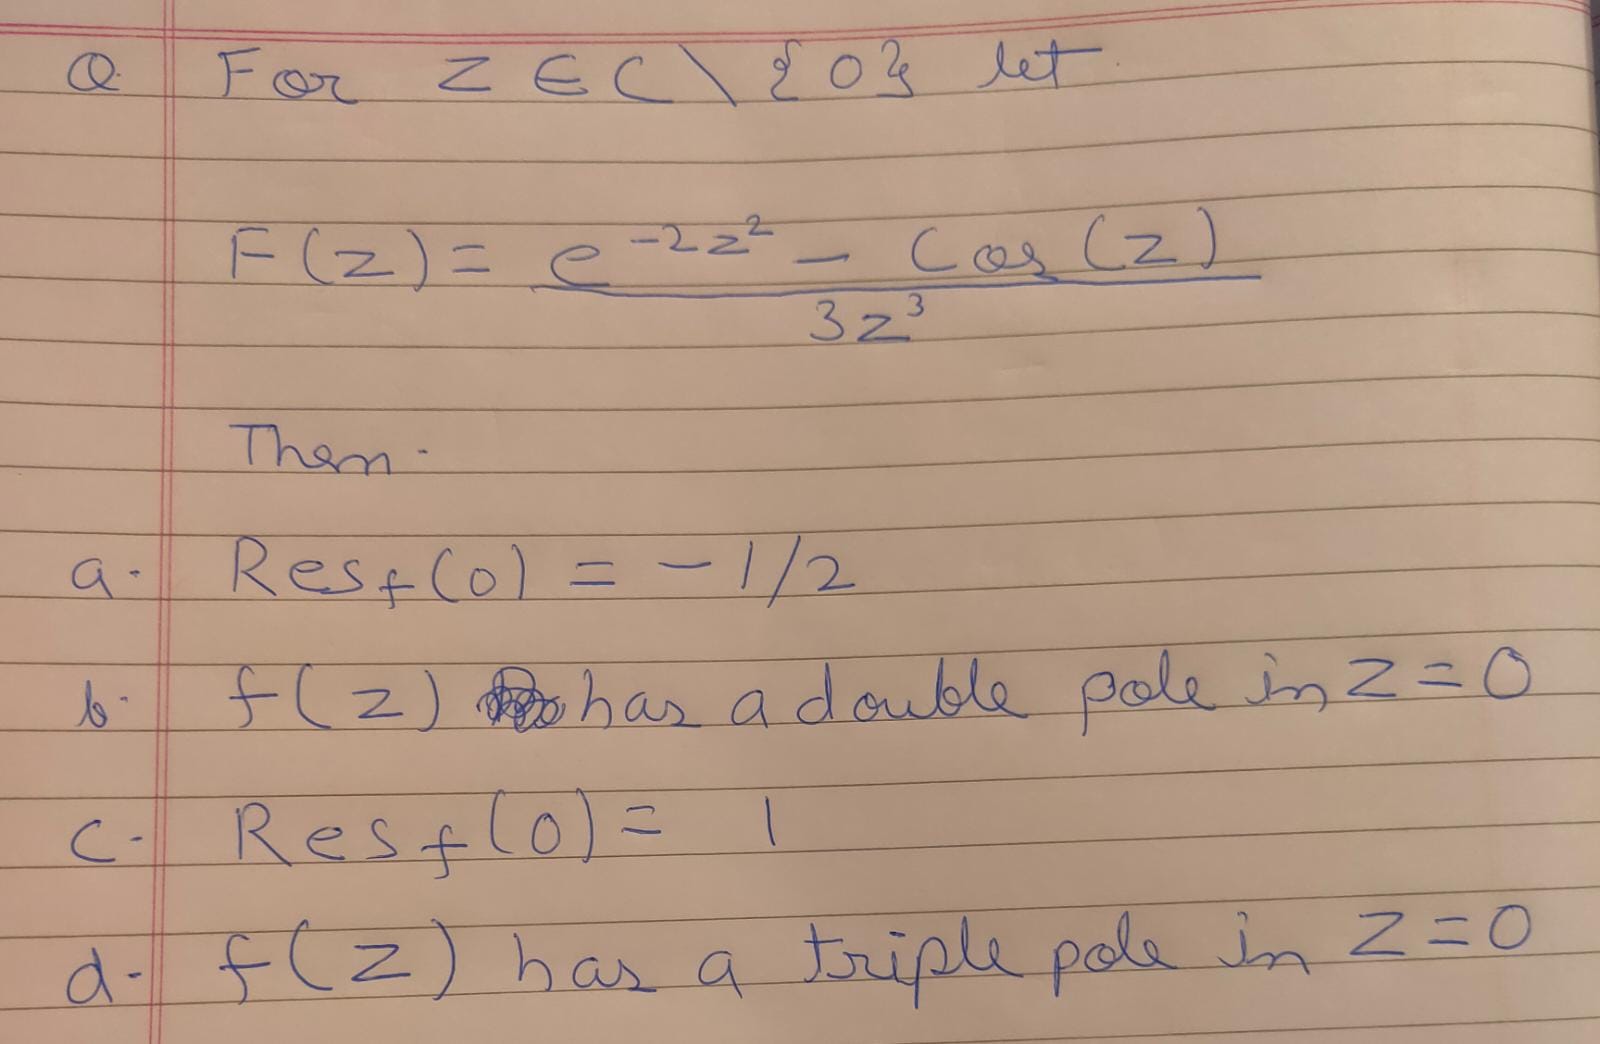 Q. For Z ∈ C \ {0} let.
F(z) = e^{-2z^2} - Cos(z)
3z^3
Then.
a. Res_f(0) = -1/2
b. f(z) has a double pole in z=0
c. Res_f(0) = 1
d. f(z) has a triple pole in z=0